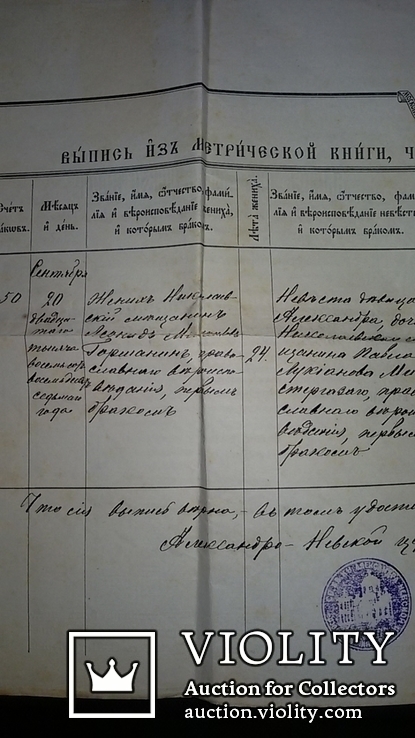 ВЫ́ПИСЬ И҆ЗЪ МЕТРИ́ЧЕСКОЙ КНИ́ГИ, Ч
Счетъ
Мѣсяцъ
и день.
Зва́ніе, и҆́мя, ѻ҆́тчество, фами́-
лія и҆ вѣроисповѣ́даніе жениха̀,
и҆ кото́рымъ бра́комъ.
Лѣта̀ жениха̀.
Зва́ніе, и҆́мя, ѻ҆́тчество, фам
лія и҆ вѣроисповѣ́даніе невѣст
и҆ кото́рымъ бра́комъ.
Сентября
50
20
двадца-
таго
тысяча
восемьсотъ
восемьдесятъ
седьмаго
года
Женихъ Николаев-
скій мѣщанинъ
Леонидъ
православнаго вѣроиспо-
вѣданія, первымъ
бракомъ
24.
Невѣста дѣвица
Александра, доч
Николаевскаго м
щанина Павла
пра
славнаго вѣрои
вѣданія, первым
бракомъ
Что сія выпись вѣрна, – въ томъ удосто
Александро-Невской ц
VIOLITY
Auction for Collectors
auction.violity.com